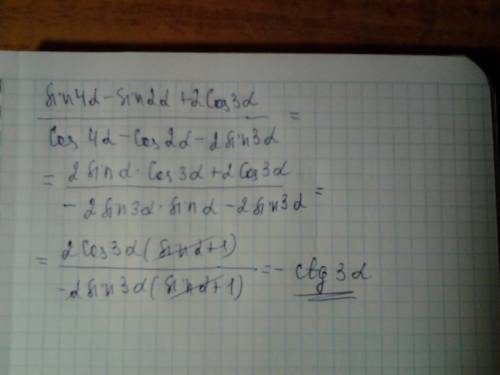 sin4α-sin2α+2Cos3α
Cos 4α-Cos2α-2sin3α =
= 2sinα·Cos3α+2Cos3α
-2sin3α·sinα-2sin3α =
= 2Cos3α(sinα+1)
-2sin3α(sinα+1) =- ctg3α